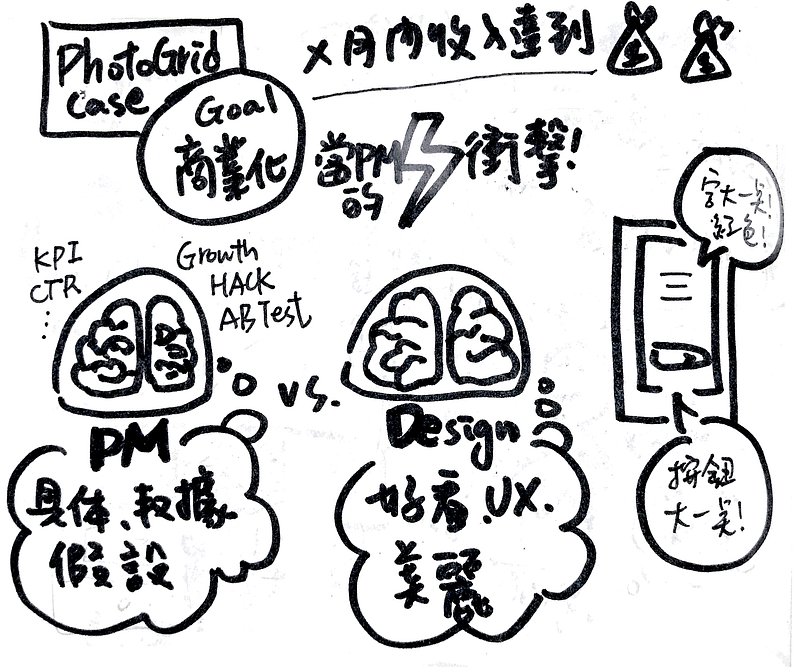 PhotoGrid
case
Goal
商業化
X月內收入達到
$ $
當PM
的
衝擊!
KPI
CTR
Growth
HACK
AB Test
vs.
PM
具体、數據
假設
Design
好看、UX.
美麗
字大一点!
紅色!
三
按鈕
大一点!